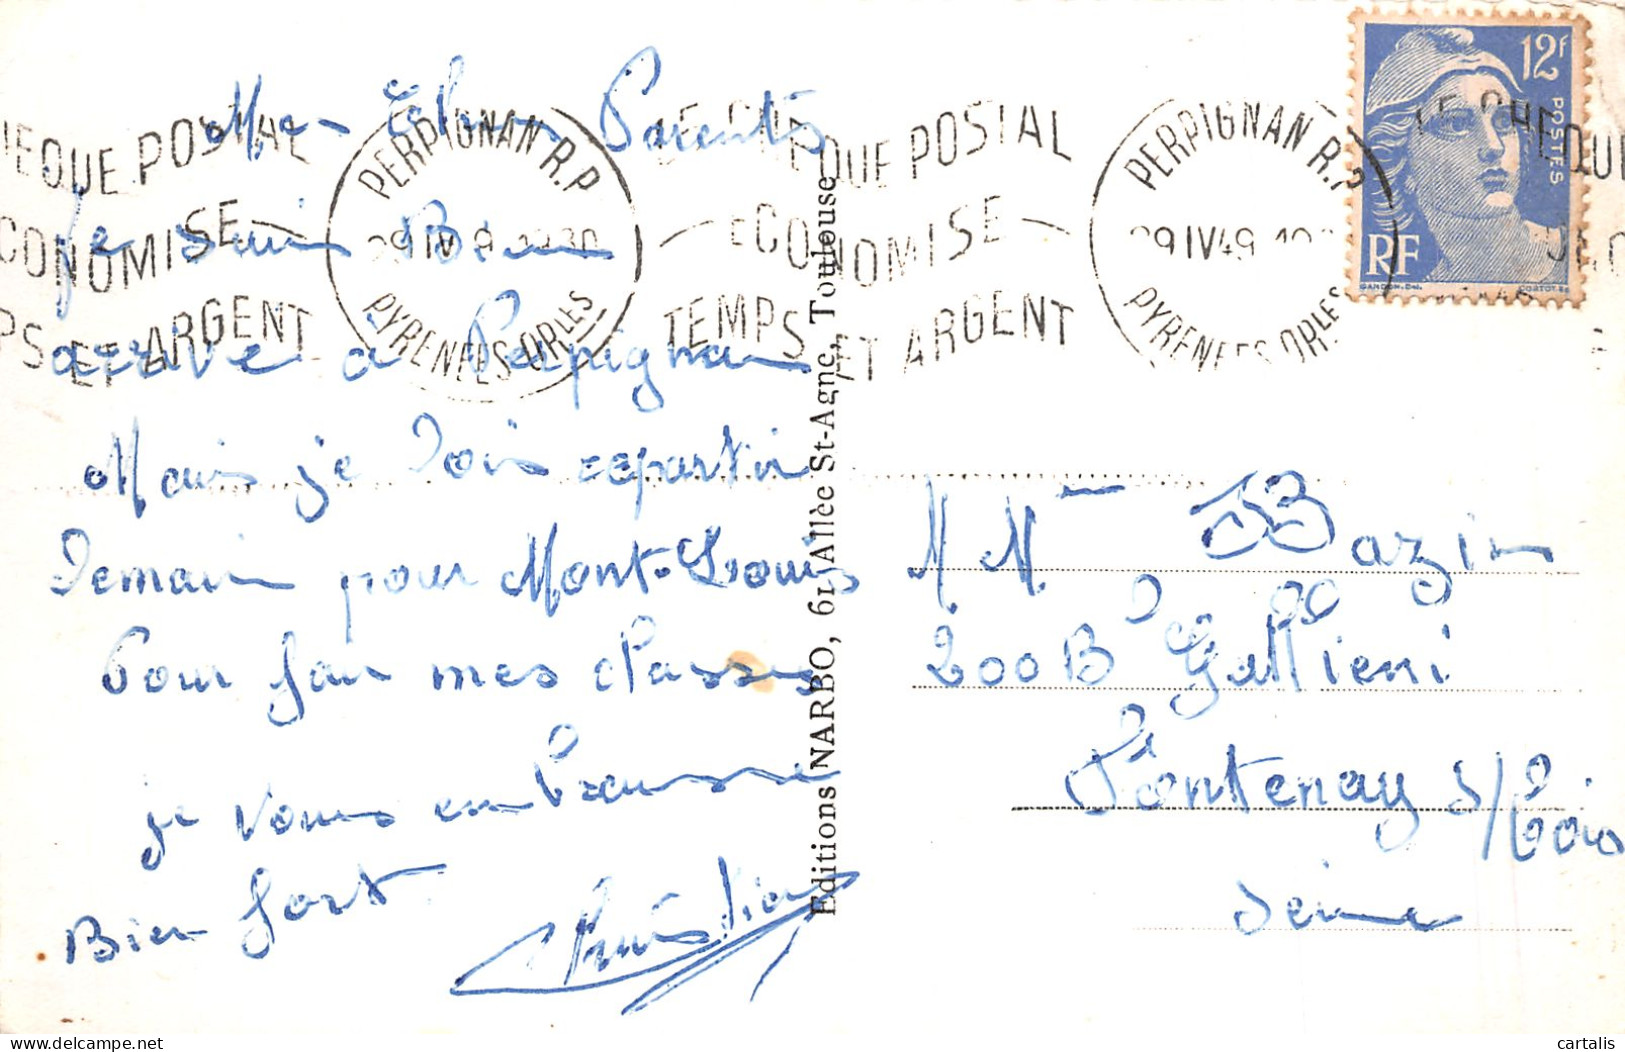 Mes Chers Parents
Je suis Bien
arrivé à Perpignan
Mais je dois repartir
Demain pour Mont-Louis
Pour fair mes classes
je vous embrasse
Bien fort
Christian
Editions NARBO, 61, Allée St-Agne, Toulouse
LE CHEQUE POSTAL
ECONOMISE
TEMPS ET ARGENT
PERPIGNAN R.P
29 IV 49
PYRENEES ORLES
LE CHEQUE POSTAL
ECONOMISE
TEMPS ET ARGENT
PERPIGNAN R.P
29 IV 49
PYRENEES ORLES
LE CHEQUE
12f
POSTES
RF
GANDON.Del.
CORTOT.Sc
M Mme Bazin
200 B d Gallieni
Fontenay s/Bois
Seine
cartalis